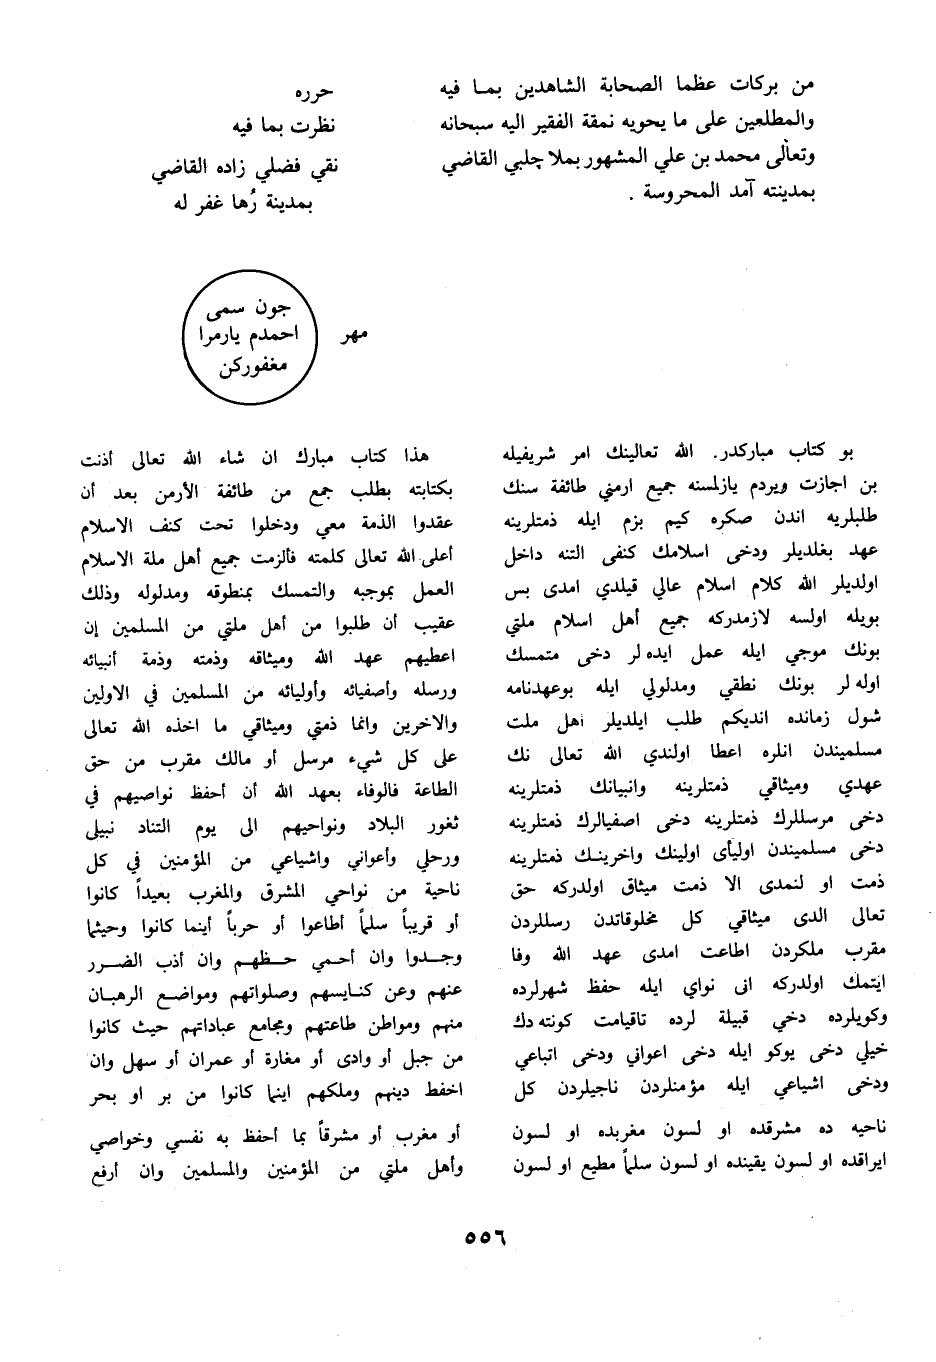 من بركات عظما الصحابة الشاهدين بمـا فيه
والمطلعين على ما يحويه نمقة الفقير اليه سبحانه
وتعالى محمد بن علي المشهور بملا چلبي القاضي
بمدينته آمد المحروسة .
حرره
نظرت بما فيه
نقي فضلي زاده القاضي
بمدينة رُها غفر له
مهر
جون سمى
احمدم يارمرا
مغفوركن
بو كتاب مباركدر. الله تعالينك امر شريفيله
بن اجازت ويردم يازلمسنه جميع ارمني طائفة سنك
طلبلريه اندن صكره كيم بزم ايله ذمتلرينه
عهد بغلديلر ودخى اسلامك كنفى التنه داخل
اولديلر الله كلام اسلام عالي قيلدي امدى بس
بويله اولسه لازمدركه جميع أهل اسلام ملتي
بونك موجي ايله عمل ايده لر دخى متمسك
اوله لر بونك نطقي ومدلولي ايله بوعهدنامه
شول زمانده انديكم طلب ايلديلر اهل ملت
مسلميندن انلره اعطا اولندي الله تعالى نك
عهدي وميثاقي ذمتلرينه وانبيانك ذمتلرينه
دخى مرسللرك ذمتلرينه دخى اصفيالرك ذمتلرينه
دخى مسلميندن اوليأى اولينك واخرينـك ذمتلرينه
ذمت او لنمدى الا ذمت ميثاق اولدركه حق
تعالى الدى ميثاقي كل مخلوقاتدن رسللردن
مقرب ملكردن اطاعت امدى عهد الله وفا
ايتمك اولدركه انى نواي ايله حفظ شهرلرده
وكويلرده دخي قبيلة لرده تاقيامت كونته دك
خيلي دخى يوكو ايله دخى اعواني ودخى اتباعي
ودخى اشياعي ايله مؤمنلردن ناجيلردن كل
ناحيه ده مشرقده او لسون مغربده او لسون
ايراقده او لسون يقينده او لسون سلماً مطيع او لسون
هذا كتاب مبارك ان شاء الله تعالى أذنت
بكتابته بطلب جمع من طائفة الأرمن بعد أن
عقدوا الذمة معي ودخلوا تحت كنف الاسلام
أعلى الله تعالى كلمته فألزمت جميع أهل ملة الاسلام
العمل بموجبه والتمسك بمنطوقه ومدلوله وذلك
عقيب أن طلبوا من أهل ملتي من المسلمين إن
اعطيهم عهد الله وميثاقه وذمته وذمة أنبيائه
ورسله وأصفيائه وأوليائه من المسلمين في الاولين
والاخرين وانما ذمتي وميثاقي ما اخذه الله تعالى
على كل شيء مرسل أو مالك مقرب من حق
الطاعة فالوفاء بعهد الله أن أحفظ نواصيهم في
ثغور البلاد ونواحيهم الى يوم التناد نبيلى
ورحلي وأعواني واشياعي من المؤمنين في كل
ناحية من نواحي المشرق والمغرب بعيداً كانوا
أو قريباً سلماً أطاعوا أو حرباً أينما كانوا وحيثما
وجـدوا وان أحـمي حـظهـم وان أذب الضـرر
عنهم وعن كنـايسهم وصلواتهم ومواضـع الرهبان
منهم ومواطن طاعتهم ومجامع عباداتهم حيث كانوا
من جبل أو وادى أو مغارة أو عمران أو سهل وان
اخفظ دينهم وملكهم اينما كانوا من بر او بحر
أو مغرب أو مشرقاً بما أحفظ به نفسي وخواصي
وأهل ملتي من المؤمنين والمسلمين وان أرفع
٥٥٦